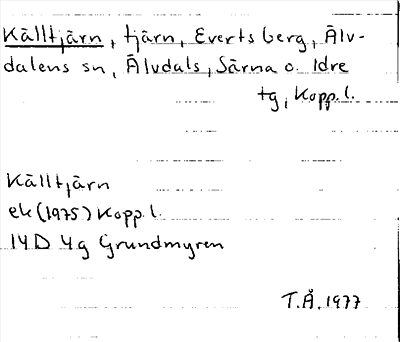 Källtjärn, tjärn, Evertsberg, Älv-
dalens sn, Älvdals, Särna o. Idre
tg, Kopp.l.
Källtjärn
ek (1975) Kopp.l.
14D 4g Grundmyren
T.Å. 1977